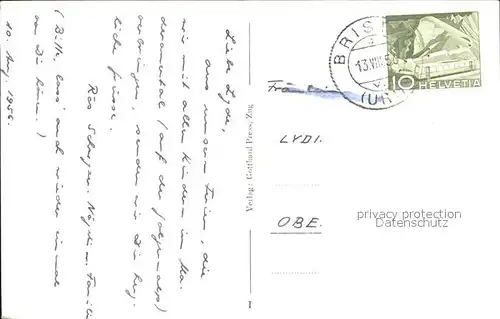 Liebe Lydi,
aus unseren Ferien, die
wir mit allen Kindern im Ma-
deranertal (auf der Golzernalp)
verbringen, senden wir Dir herz-
liche Grüsse.
Rös Nägeli m. Familie
(Bitte, lass auch wieder einmal
von Dir hören!)
10. Aug. 1956.
Verlag: Gotthard Press, Zug
BRIS
13.VIII.5
(UR
10 HELVETIA
Fräulein
LYDI.
OBE.
privacy protection
Datenschutz